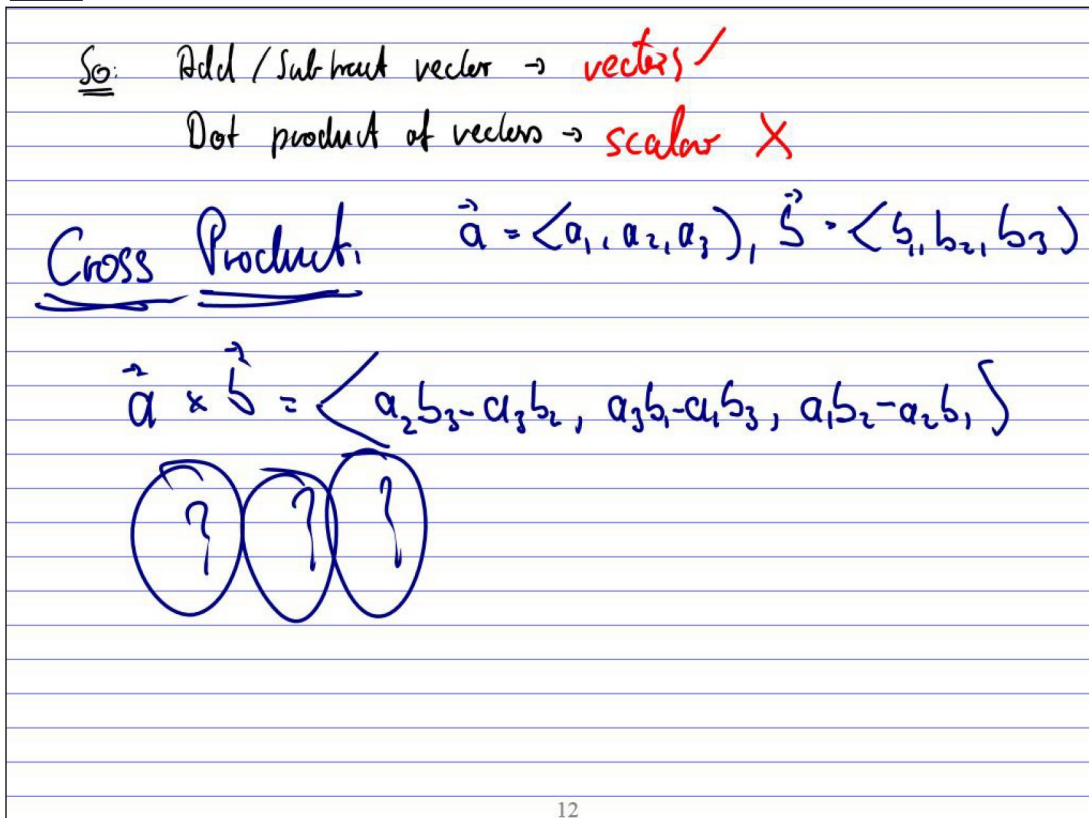 So: Add / Subtract vector → vectors ✓
Dot product of vectors → scalar X
Cross Product. a⃗ = <a₁, a₂, a₃>, b⃗ = <b₁, b₂, b₃>
a⃗ × b⃗ = <a₂b₃-a₃b₂, a₃b₁-a₁b₃, a₁b₂-a₂b₁>
? ? ?
12